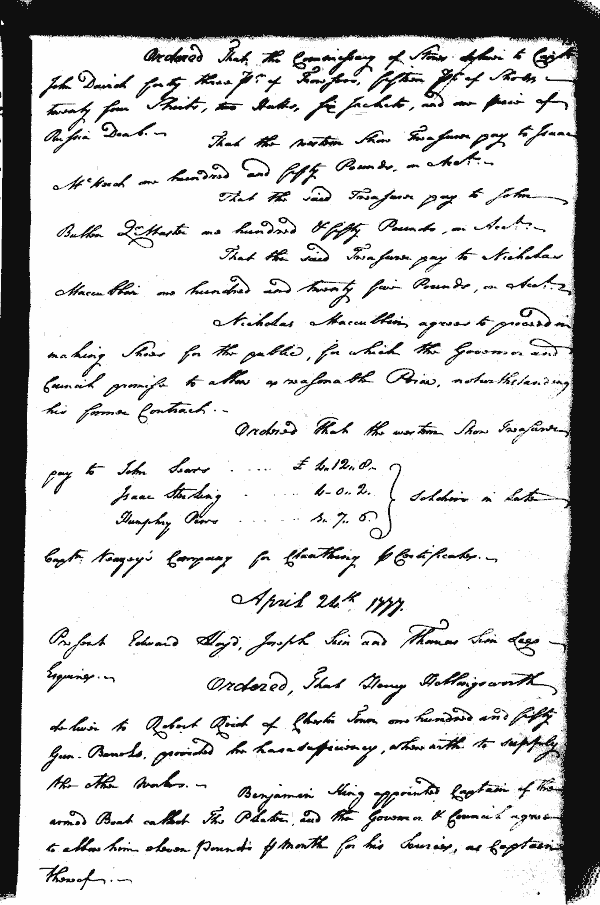 Ordered That the Commissary of Stores deliver to Capt
John David forty three Prs. of Trowsers, fifteen Prs. of Shoes,
twenty four Shirts, two Hatts, six Jackets, and one piece of
Russia Drab. -
That the western Shore Treasurer pay to Isaac
McHard one hundred and fifty Pounds, on Acct. -
That the said Treasurer pay to John
Bullen Qr. Master one hundred & fifty Pounds, on Acct. -
That the said Treasurer pay to Nicholas
Maccubbin one hundred and twenty five Pounds, on Acct. -
Nicholas Maccubbin agrees to proceed in
making Shoes for the public, for which the Governor and
Council promise to allow a reasonable Price, notwithstanding
his former Contract. -
Ordered That the western Shore Treasurer
pay to John Sears . . . . . £ 4..12..8.
Isaac Sterling . . . . . 4..0..2.
Humphry . . . . . 4..7..6. } Soldiers in Late
Captn. Veazey's Company for Cloathing Certificates. -
April 24th. 1777.
Present Edward Lloyd, Joseph Sim and Thomas Sim Lee
Esquires. -
Ordered, That Henry Hollingsworth
deliver to Robert Reid of Chester Town one hundred and fifty
Gun-Barrels, provided he has a sufficiency, wherewith to supply
the other Works. -
Benjamin King appointed Captain of the
armed Boat called The Plater, and the Governor & Council agree
to allow him eleven Pounds Month for his Services, as Captain
thereof. -